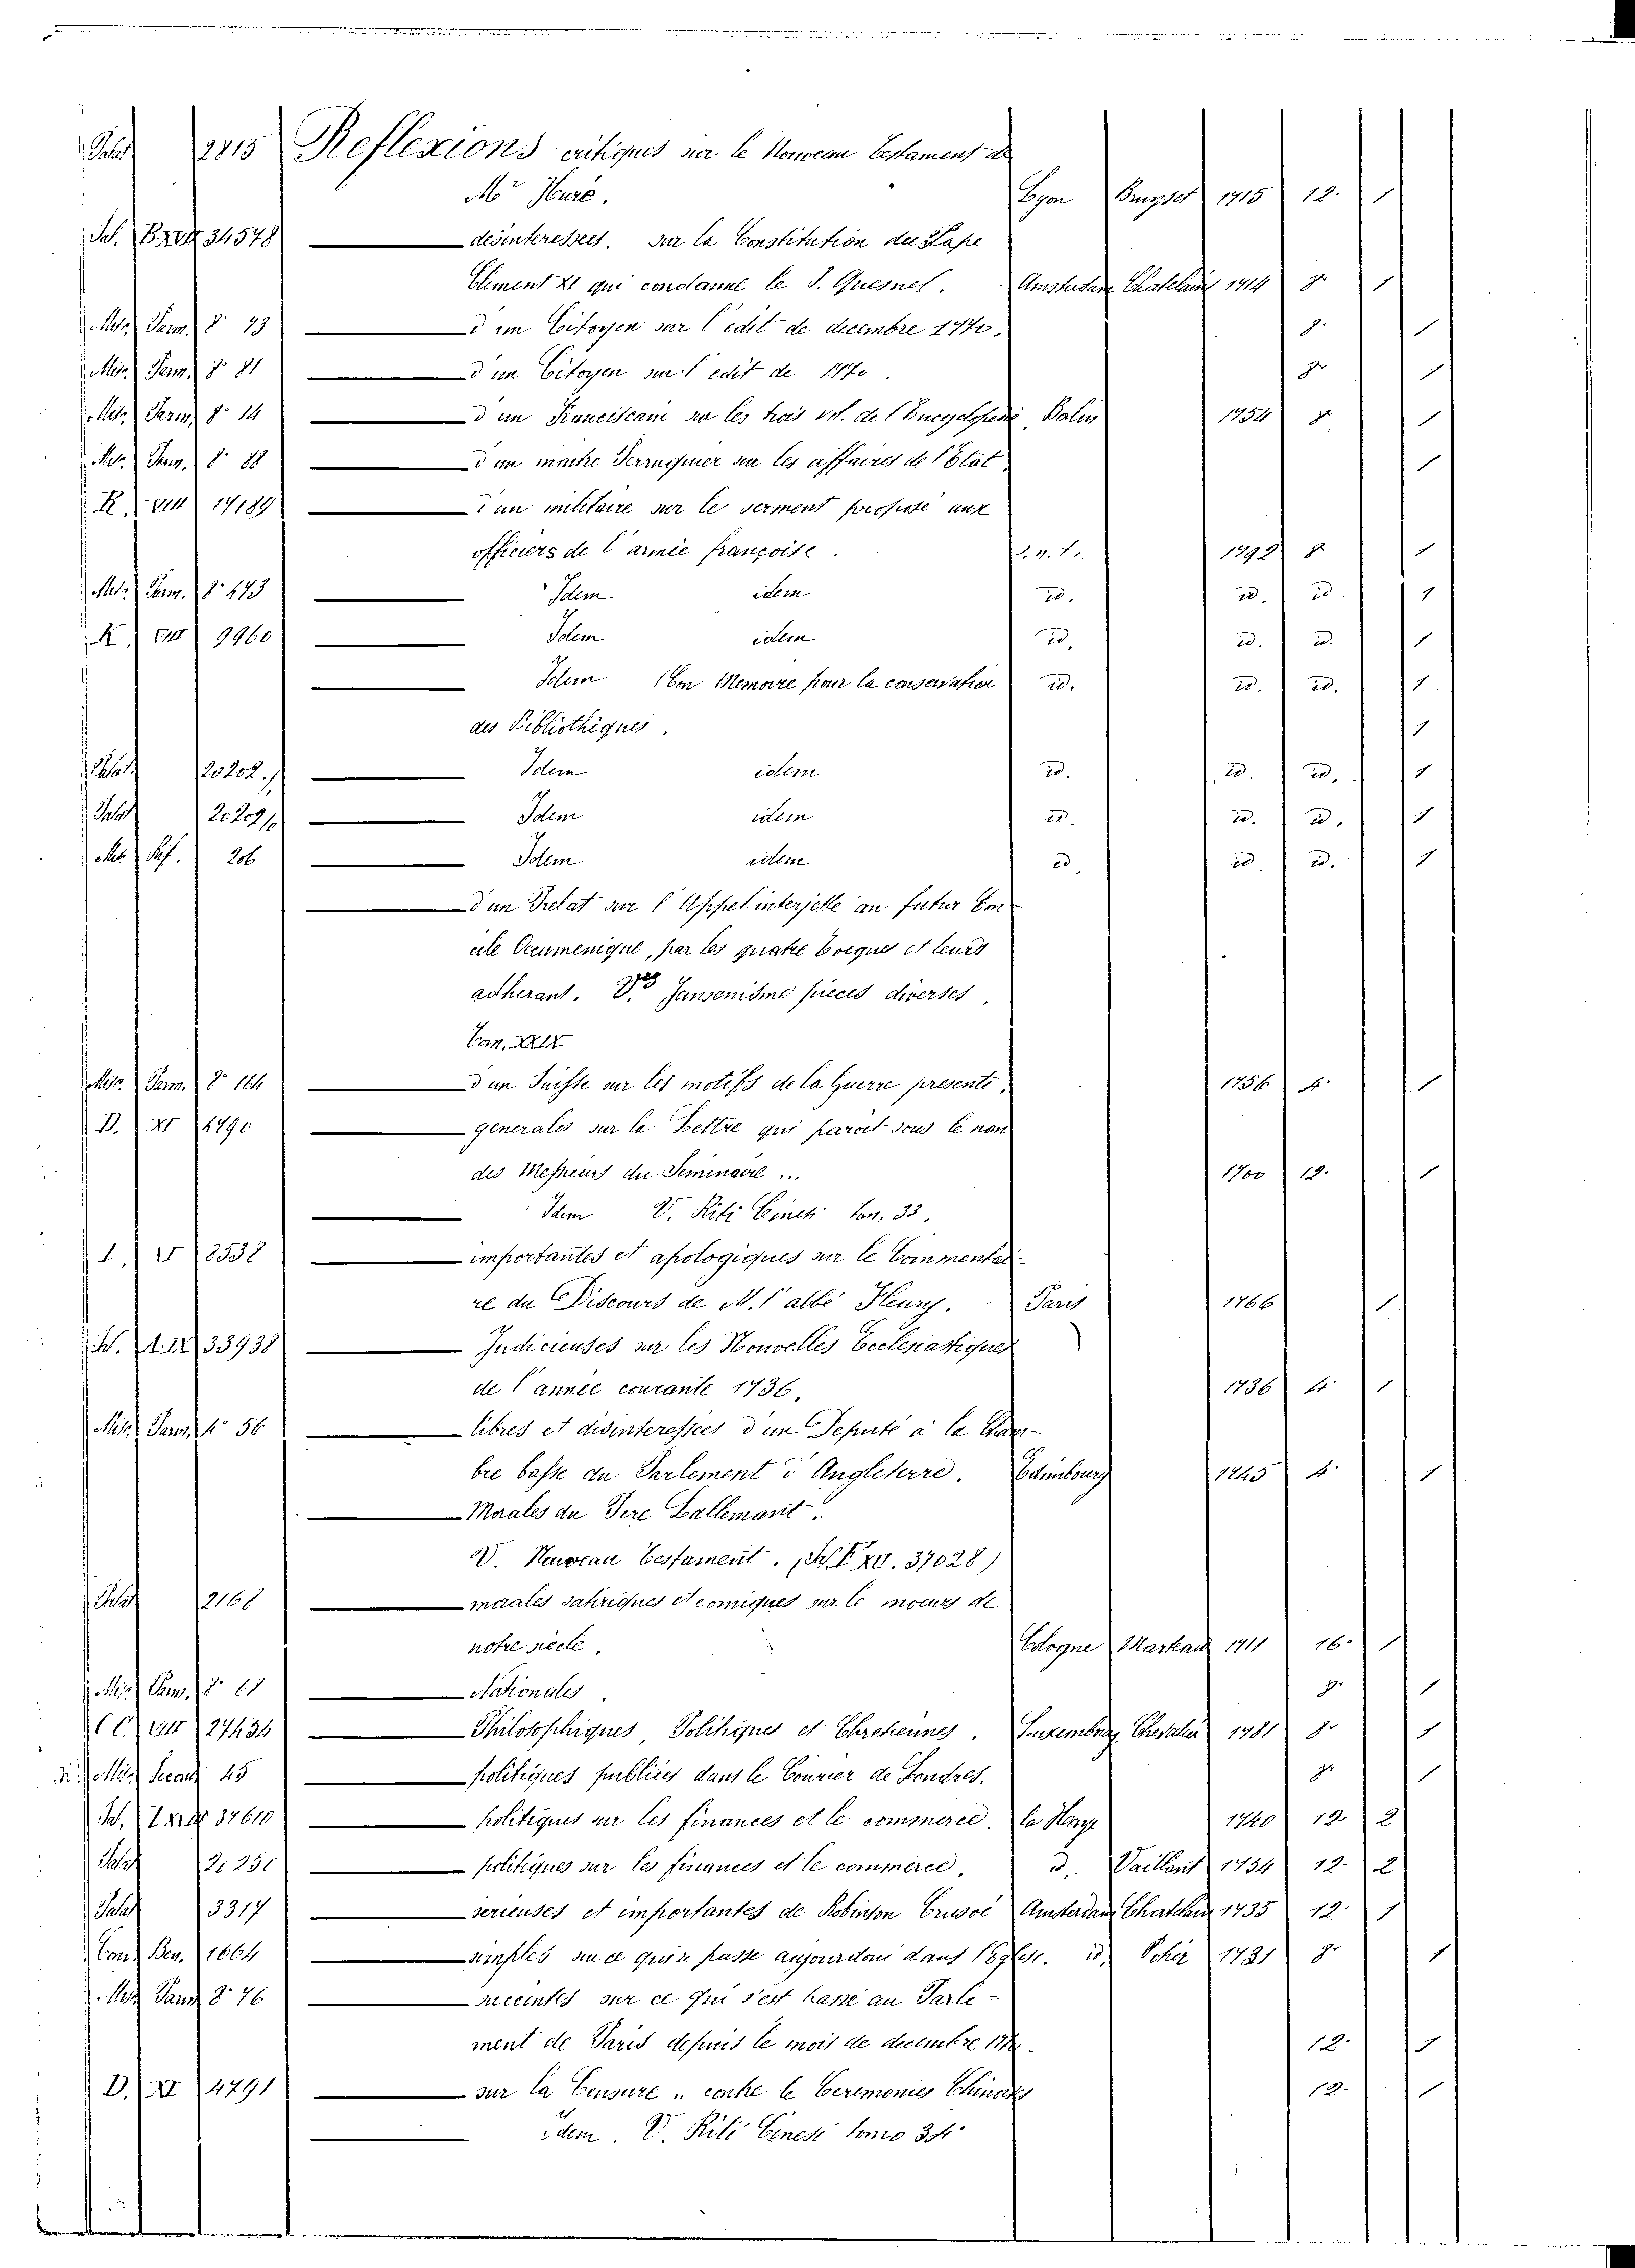 2815 Reflexions critiques sur le Nouveau Testament de
Mr Huré. Lyon Bruyset 1715 12. 1
34578 desinteressées. sur la Constitution du Pape
Clement XI qui condanne le P. Quesnel. Amsterdam Chatelain 1714 8° 1
Misc. Parm. 8° 73 d'un Citoyen sur l'edit de decembre 1770. 8. 1
Misc. Parm. 8° 81 d'un Citoyen sur l'edit de 1770. 8° 1
Misc. Parm. 8° 14 d'un Franciscain sur les trois vol. de l'Encyclopedie Berlin 1754 8° 1
Misc. Parm. 8° 88 d'un maitre Perruquier sur les affaires de l'Etat 1
R. VIII 14189 d'un militaire sur le serment proposé aux
officiers de l'armée françoise. S. n. t. 1792 8° 1
Misc. Parm. 8° 473 Idem idem id. id. id. 1
R. VIII 9960 Idem idem id. id. id. 1
Idem Con Memoire pour la conservation id. id. id. 1
des Bibliothèques. 1
Palat. 20202. Idem idem id. id. id. 1
Palat. Idem idem id. id. id. 1
206 Idem idem id. id. id. 1
d'un Prelat sur l'Appel interjetté au futur Con-
cile Oecumenique, par les quatre Eveques et leurs
adherant. V. Jansenisme pieces diverses,
Misc. Parm. 8° 164 d'un Suisse sur les motifs de la Guerre presente, 1756 4. 1
D. XI 4790 generales sur la Lettre qui paroit sous le nom
des Messieurs du Seminaire ... 1700 12. 1
Idem V. Riti Cinesi tom. 33.
8538 importantes et apologiques sur le Commentai-
re du Discours de M. l'abbé Fleury. Paris 1766 1
33938 Judicieuses sur les Nouvelles Ecclesiastiques
de l'année courante 1736. 1736 4. 1
Misc. Parm. 4° 56 libres et disinteressées d'un Deputé a la Cham-
bre basse du Parlement d'Angleterre. Edimbourg 1745 4. 1
Morales du Pere Lallemant.
V. Nouveau Testament. 37028)
Palat. 2168 morales satiriques et comiques sur le moeurs de
notre siecle. Cologne Marteau 1711 16. 1
Misc. Parm. 8° 68 Nationales. 8° 1
CC. VIII 27454 Philosophiques, Politiques et Chretiennes. Luxembourg Chevalier 1781 8° 1
45 politiques publiées dans le Courier de Londres. 8° 1
37610 politiques sur les finances et le commerce. la Haye 1740 12. 2
Palat. 20230 politiques sur les finances et le commerce, id. Vaillant 1754 12. 2
Palat. 3317 serieuses et importantes de Robinson Crusoé Amsterdam Chatelain 1735 12. 1
1664 simples sur ce qui se passe aujourd'oui dans l'Eglise. id. 1731 8° 1
Misc. Parm. 8° 76 succintes sur ce qui s'est passé au Parle-
ment de Paris depuis le mois de decembre 1770. 12. 1
D. XI 4791 sur la Censure .. contre le Ceremonies Chinoises 12. 1
idem. V. Riti Cinesi tomo 34.